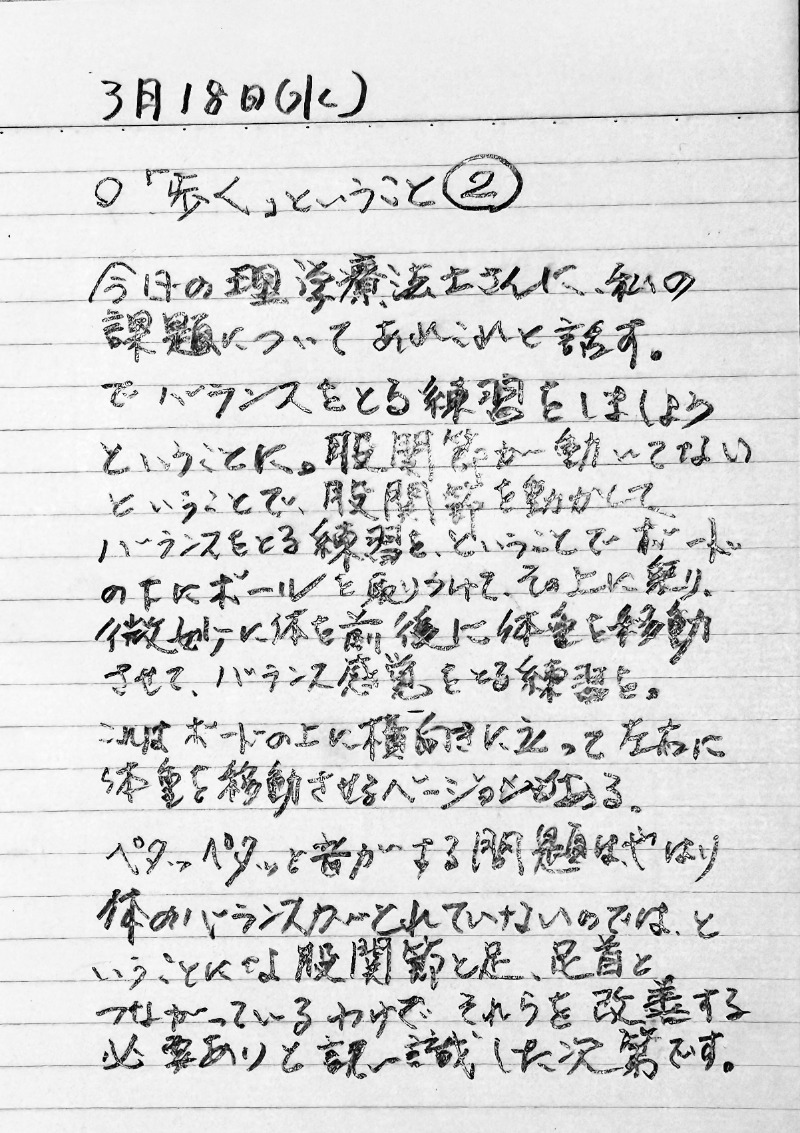 3月18日(水)
○「歩く」ということ②
今日の理学療法士さんに、私の
課題についてあれこれと話す。
でバランスをとる練習をしましょう
ということに。股関節が動いてない
ということで、股関節を動かして
バランスをとる練習を、ということでボード
の下にボールを取りつけて、その上に乗り、
微妙に体を前後に体重を移動
させて、バランス感覚をとる練習を。
これはボードの上に横向きに立って左右に
体重を移動させるバージョンもある。
ペタッペタッと音がする問題は、やはり
体のバランスがとれていないのでは、と
いうことになり股関節と足、足首と
つながっているわけで それらを改善する
必要ありと認識した次第です。